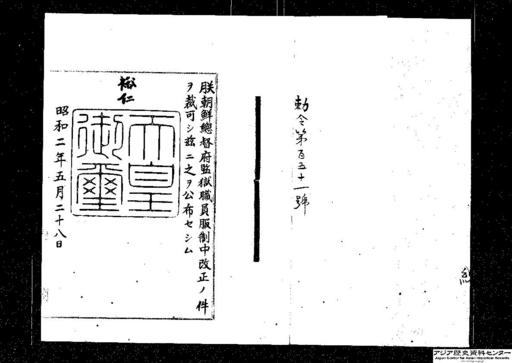 勅令第百五十一號
朕朝鮮總督府監獄職員服制中改正ノ件
ヲ裁可シ茲ニ之ヲ公布セシム
裕仁
天皇
御璽
昭和二年五月二十八日
アジア歴史資料センター
Japan Center for Asian Historical Records